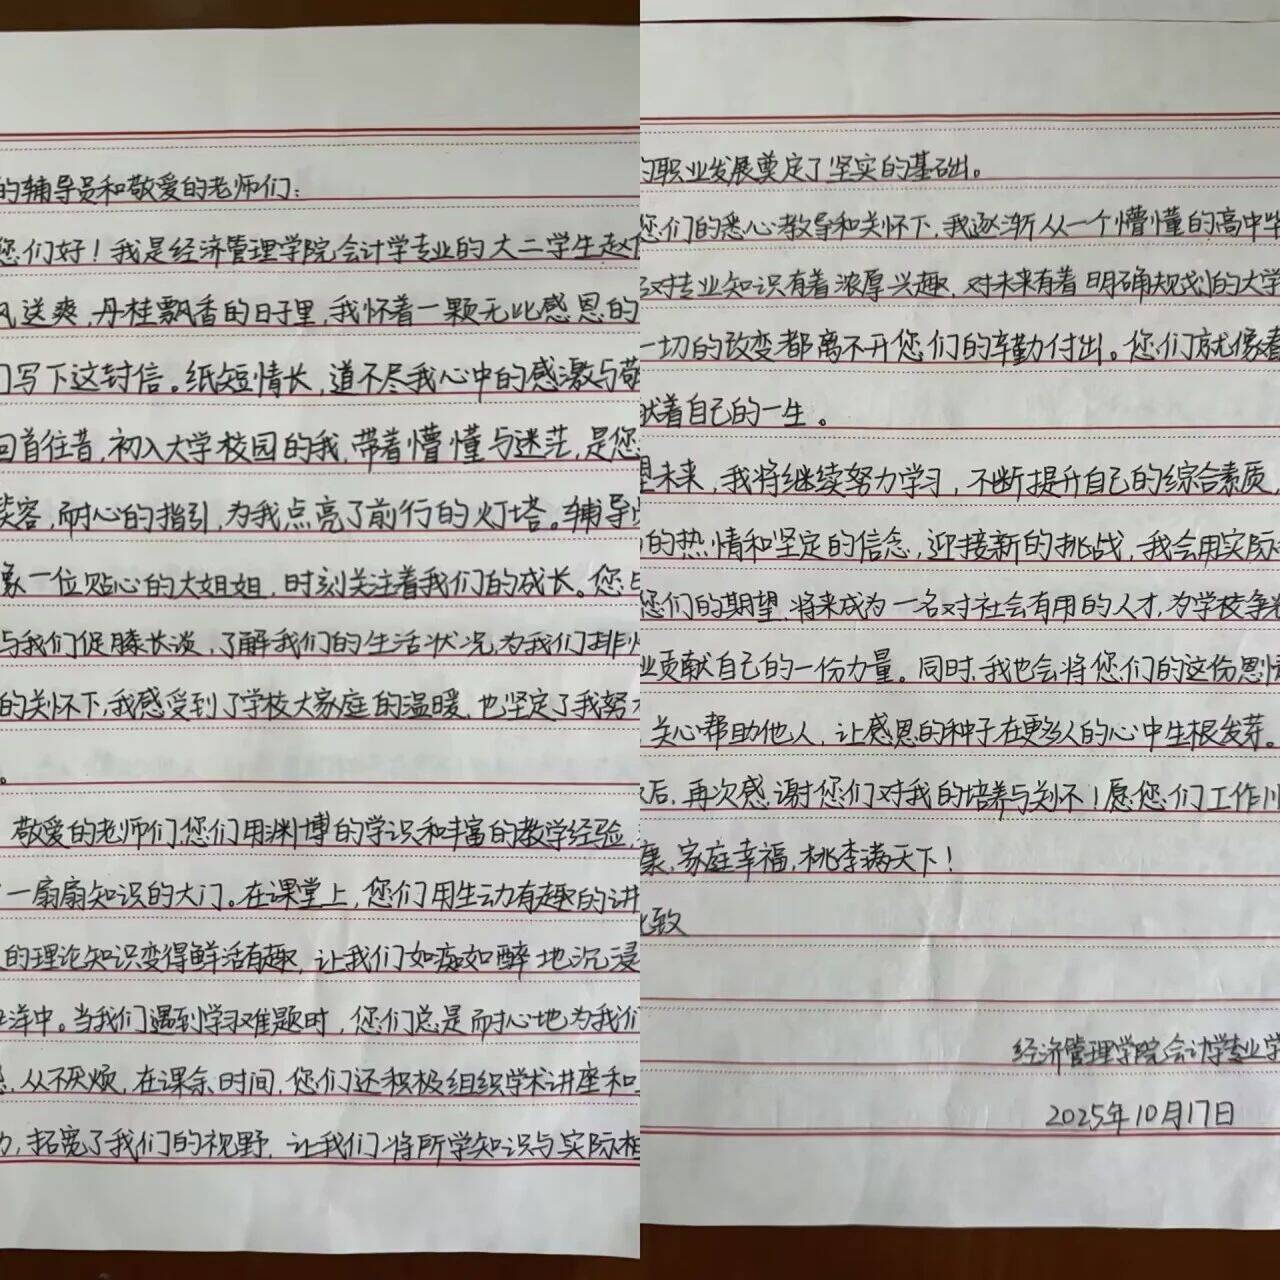 的辅导员和敬爱的老师们：
您们好！我是经济管理学院会计学专业的大二学生赵
风送爽，丹桂飘香的日子里，我怀着一颗无比感恩的
们写下这封信。纸短情长，道不尽我心中的感激与敬
回首往昔，初入大学校园的我，带着懵懂与迷茫，是您
笑容，耐心的指引，为我点亮了前行的灯塔。辅导
像一位贴心的大姐姐，时刻关注着我们的成长。您
与我们促膝长谈，了解我们的生活状况，为我们排忧
的关怀下，我感受到了学校大家庭的温暖，也坚定了我努
。
敬爱的老师们，您们用渊博的学识和丰富的教学经验，
一扇扇知识的大门。在课堂上，您们用生动有趣的讲
的理论知识变得鲜活有趣，让我们如痴如醉地沉浸
洋中。当我们遇到学习难题时，您们总是耐心地为我们
惑，从不厌烦，在课余时间，您们还积极组织学术讲座和
，拓宽了我们的视野，让我们将所学知识与实际相
的职业发展奠定了坚实的基础。
您们的悉心教导和关怀下，我逐渐从一个懵懂的高中毕
对专业知识有着浓厚兴趣，对未来有着明确规划的大学
一切的改变都离不开您们的辛勤付出。您们就像春
献着自己的一生。
望未来，我将继续努力学习，不断提升自己的综合素质，
的热情和坚定的信念，迎接新的挑战，我会用实际
您们的期望，将来成为一名对社会有用的人才，为学校争光
业贡献自己的一份力量。同时，我也会将您们的这份恩情
关心帮助他人，让感恩的种子在更多人的心中生根发芽。
后，再次感谢您们对我的培养与关怀！愿您们工作顺
康，家庭幸福，桃李满天下！
此致
经济管理学院会计学专业学
2025年10月17日